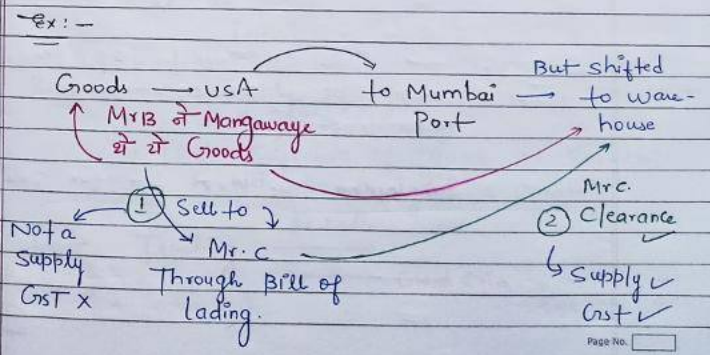 Ex:-
Goods → USA to Mumbai Port → But shifted to ware-house
Mr B ने Mangawaye
थे ये Goods
① Sell to
Mr. C
Through Bill of
lading.
Not a
Supply
GST X
Mr C.
② Clearance ✓
Supply ✓
Gst ✓
Page No.